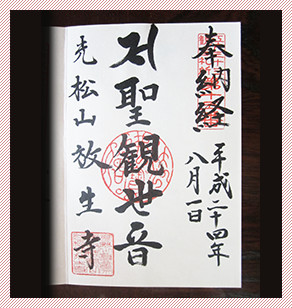 奉納経
平成二十四年
八月一日
聖観世音
光松山放生寺